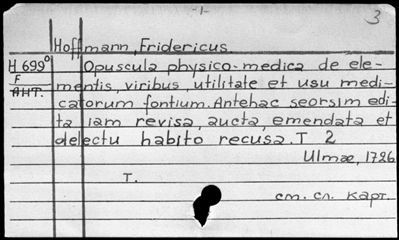 -1-
3
Hoffmann, Fridericus.
H 699º Opuscula physico-medica de ele-
F mentis, viribus, utilitate et usu medi-
АНТ. catorum fontium. Antehac seorsim edi-
ta iam revisa, aucta, emendata et
delectu habito recusa. T 2
Ulmæ, 1726
T.
см. сл. карт.